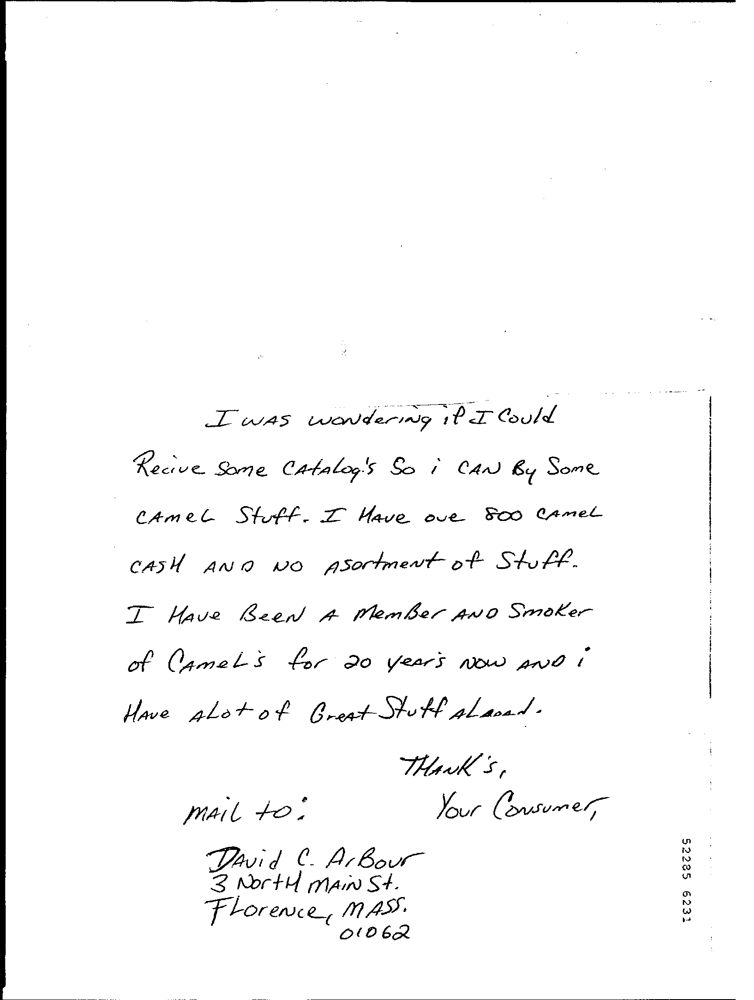 I WAS wondering if I Could
Recive Some CAtALog's So i CAN By Some
CAMEL Stuff. I HAve ove 800 CAMEL
CASH AND NO Asortment of Stuff.
I HAve BeeN A MemBer AND SmoKer
of CAmeL's for 20 years NOW AND i
HAve ALot of GreAt Stuff
THANK's,
Your Consumer,
MAIL to:
DAvid C. ArBour
3 NortH MAiN St.
FLoreNce, MASS.
01062
52285 6231